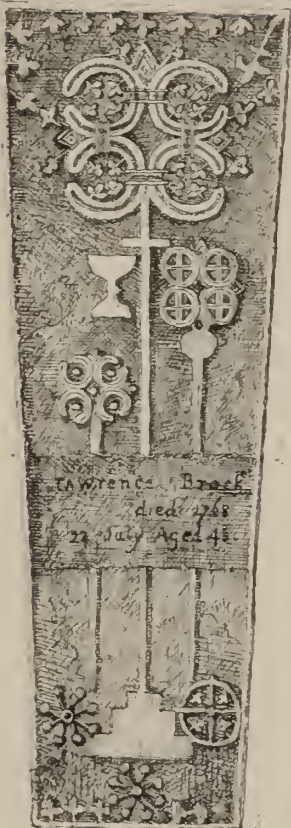 Lawrence Brock
died 1768
22 July Aged 45